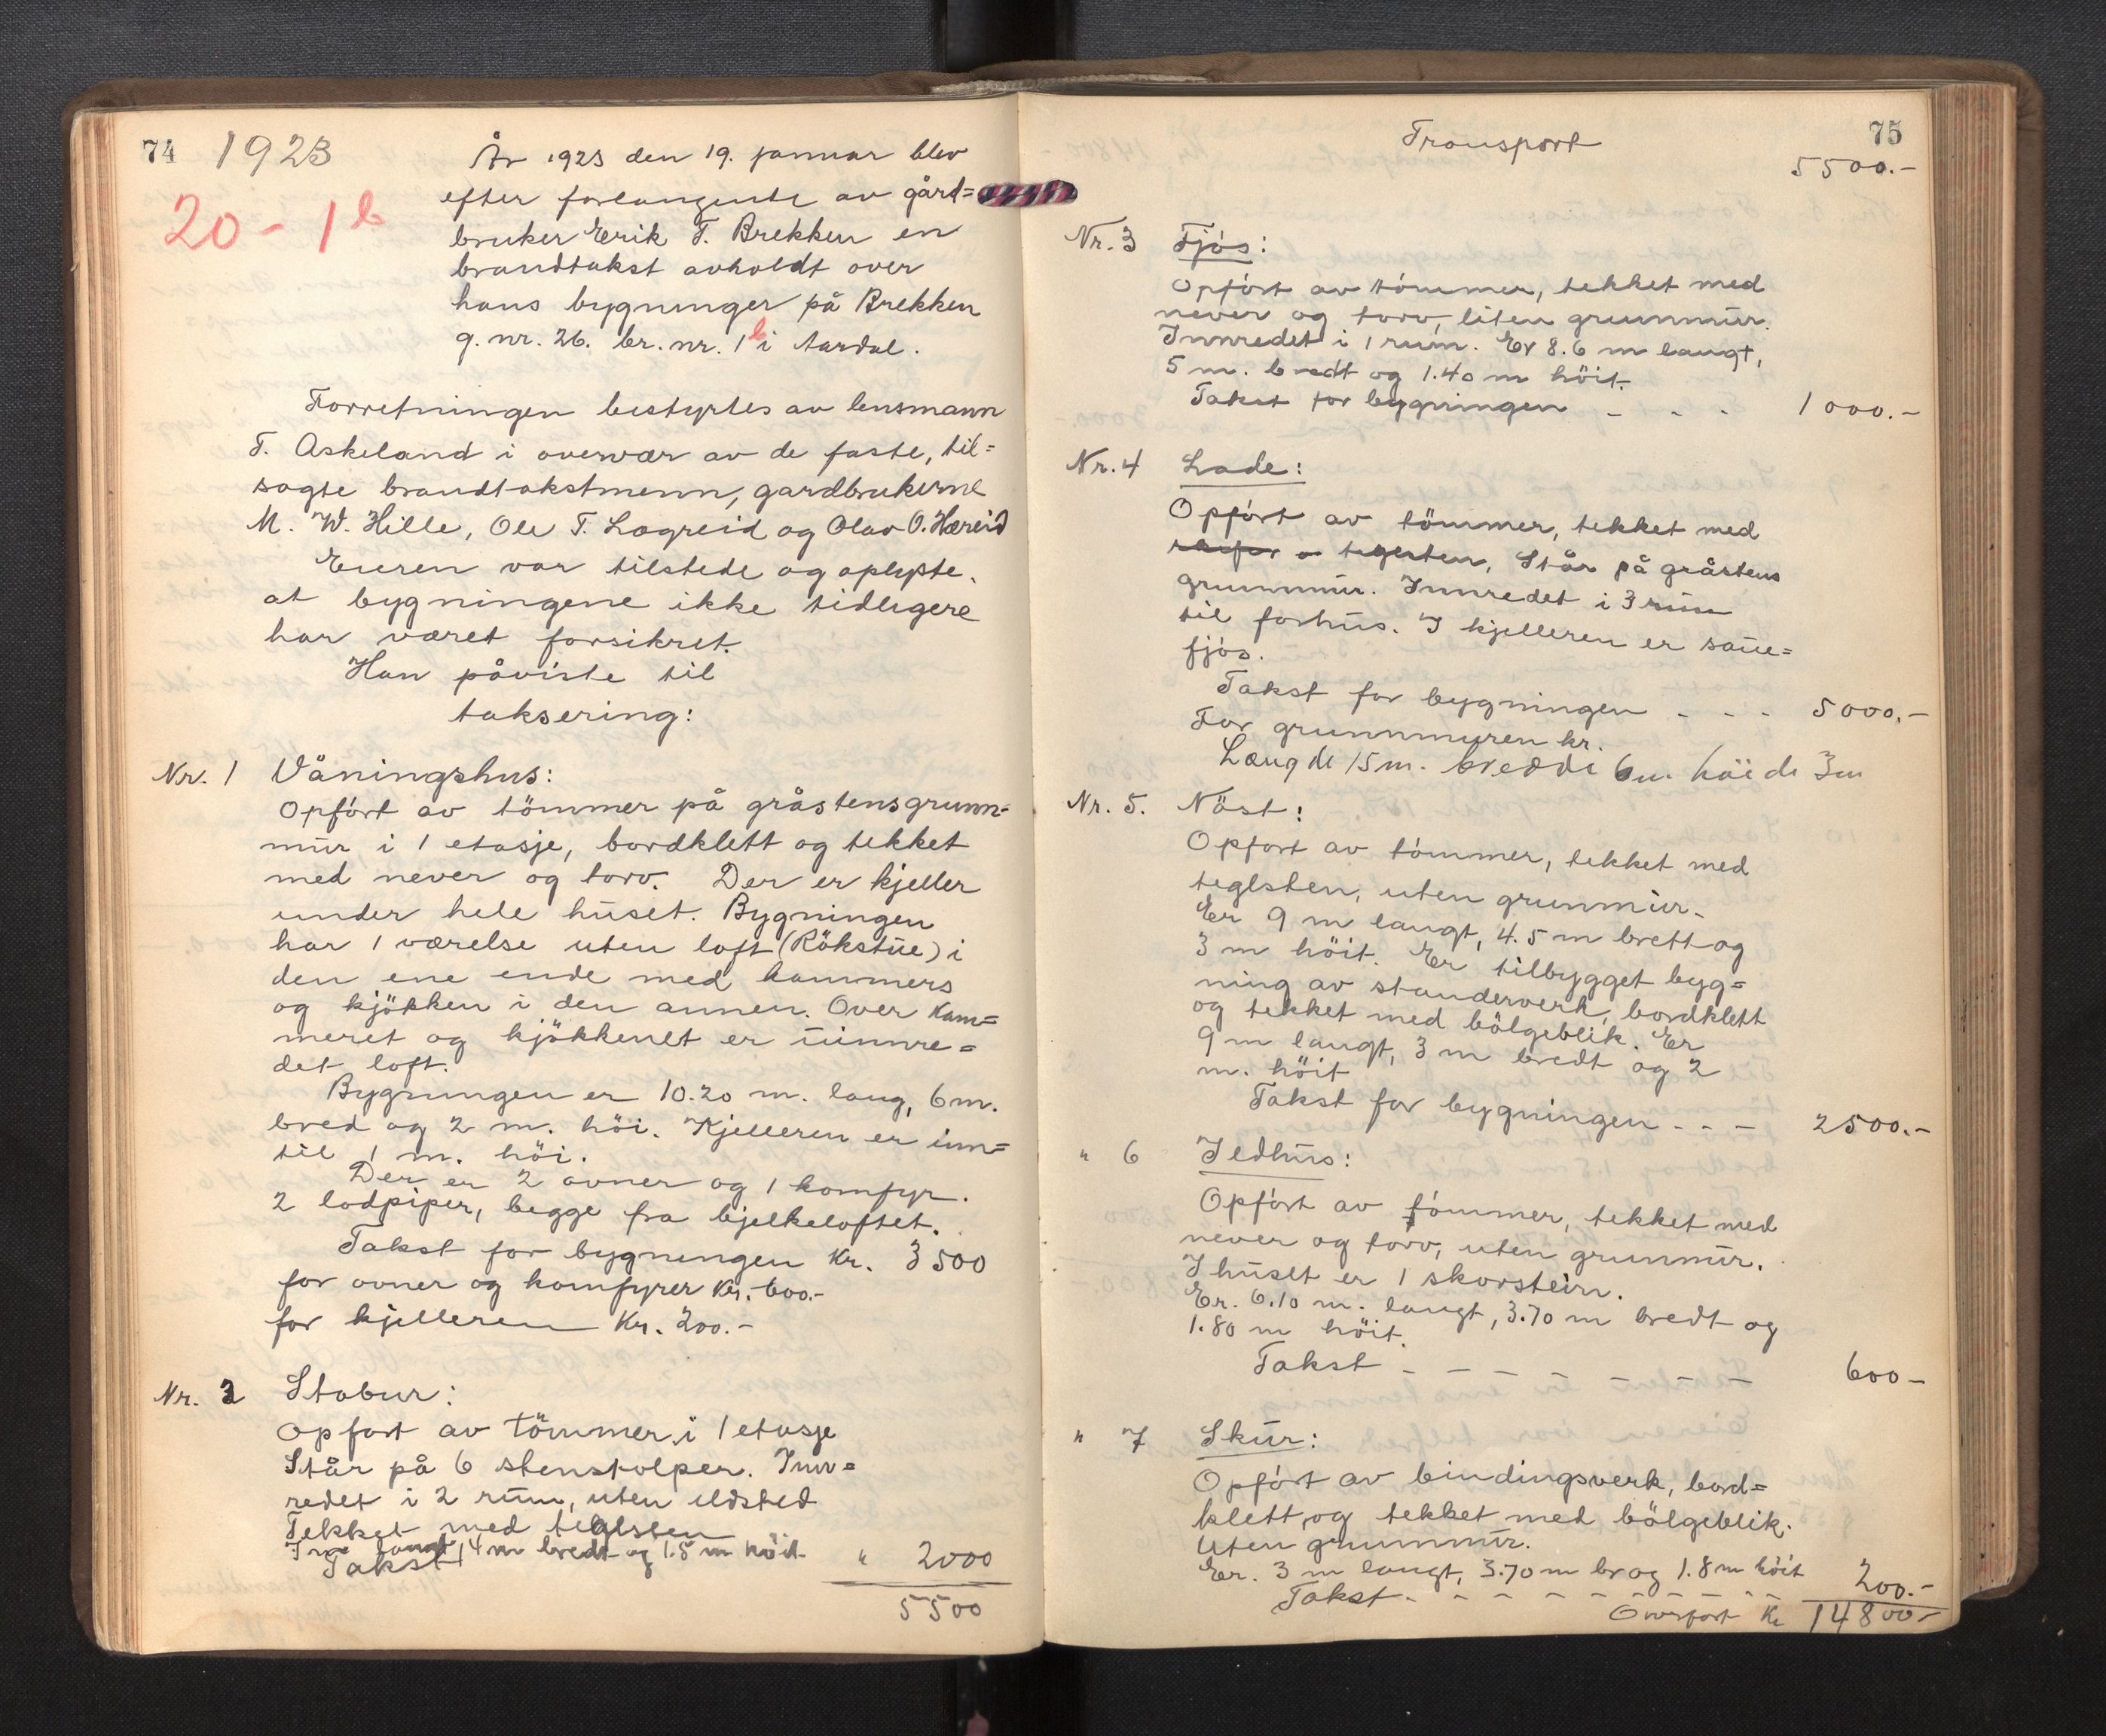 74 1923
20 - 1 b
År 1923 den 19. januar blev
efter forlangende av gård=
bruker Erik T. Brekken en
brandtakst avholdt over
hans bygninger på Brekken
g. nr. 26. br. nr. 1 b i Aardal.
Forretningen bestyrtes av lensmann
T. Askeland i overvær av de faste, til=
sagte brandtakstmenn, gardbrukerne
M. W. Hille, Ole T. Lægreid og Olav O. Hæreid
Eieren var tilstede og oplyste,
at bygningene ikke tidligere
har været forsikret.
Han påviste til
taksering:
Nr. 1 Våningshus:
Opført av tömmer på gråstensgrunn=
mur i 1 etasje, bordklett og tekket
med never og torv. Der er kjeller
under hele huset. Bygningen
har 1 værelse uten loft (Rökstue) i
den ene ende med kammers
og kjökken i den annen. Over kam=
meret og kjökkenet er uinnre=
det loft.
Bygningen er 10.20 m. lang, 6 m.
bred og 2 m. höi. Kjelleren er inn=
til 1 m. höi.
Der er 2 ovner og 1 komfyr.
2 lodpiper, begge fra bjelkeloftet.
Takst for bygningen Kr. 3500
for ovner og komfyrer Kr. 600.-
for kjelleren Kr. 200.-
Nr. 2 Stabur:
Opfört av tömmer i 1 etasje
Står på 6 stenstolper. Inn=
redet i 2 rum, uten ildsted
Tekket med teglsten
langt, 4 m bredt og 1.5 m höit
Takst " 2000
5500
75
Transport
5500.-
Nr. 3 Fjós:
Opfört av tömmer, tekket med
never og torv, liten grunnmur.
Innredet i 1 rum. Er 8.6 m langt,
5 m. bredt og 1.40 m höit.
Takst for bygningen - - - 1000.-
Nr. 4 Lade:
Opfört av tömmer, tekket med
teglsten, Står på gråstens
grunnmur. Innredet i 3 rum
til forhus. I kjelleren er saue=
fjós.
Takst for bygningen - - - 5000.-
For grunnmuren kr.
Længde 15 m. bredde 6 m. höide 3 m
Nr. 5. Nöst:
Opfört av tömmer, tekket med
teglsten, uten grunnmur.
Er 9 m langt, 4.5 m brett og
3 m höit. Er tilbygget byg=
ning av standerverk, bordklett
og tekket med bölgeblik. Er
9 m langt, 3 m bredt og 2
m. höit
Takst for bygningen - - - 2500.-
" 6 Ildhus:
Opfört av tömmer, tekket med
never og torv, uten grunnmur.
I huset er 1 skorstein.
Er. 6.10 m. langt, 3.70 m bredt og
1.80 m höit.
Takst - - - - - - - 600-
" 7 Skur:
Opfört av bindingsverk, bord=
klett, og tekket med bölgeblik.
Uten grunnmur.
Er. 3 m langt, 3.70 m br og 1.8 m höit
Takst - - - - - - - - 200.-
Overfört Kr 14800-